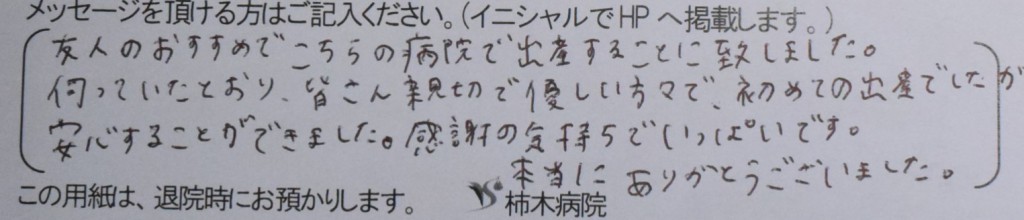 メッセージを頂ける方はご記入ください。(イニシャルでHPへ掲載します。)
友人のおすすめでこちらの病院で出産することに致しました。
伺っていたとおり、皆さん親切で優しい方々で、初めての出産でしたが
安心することができました。感謝の気持ちでいっぱいです。
本当に ありがとうございました。
この用紙は、退院時にお預かりします。 柿木病院